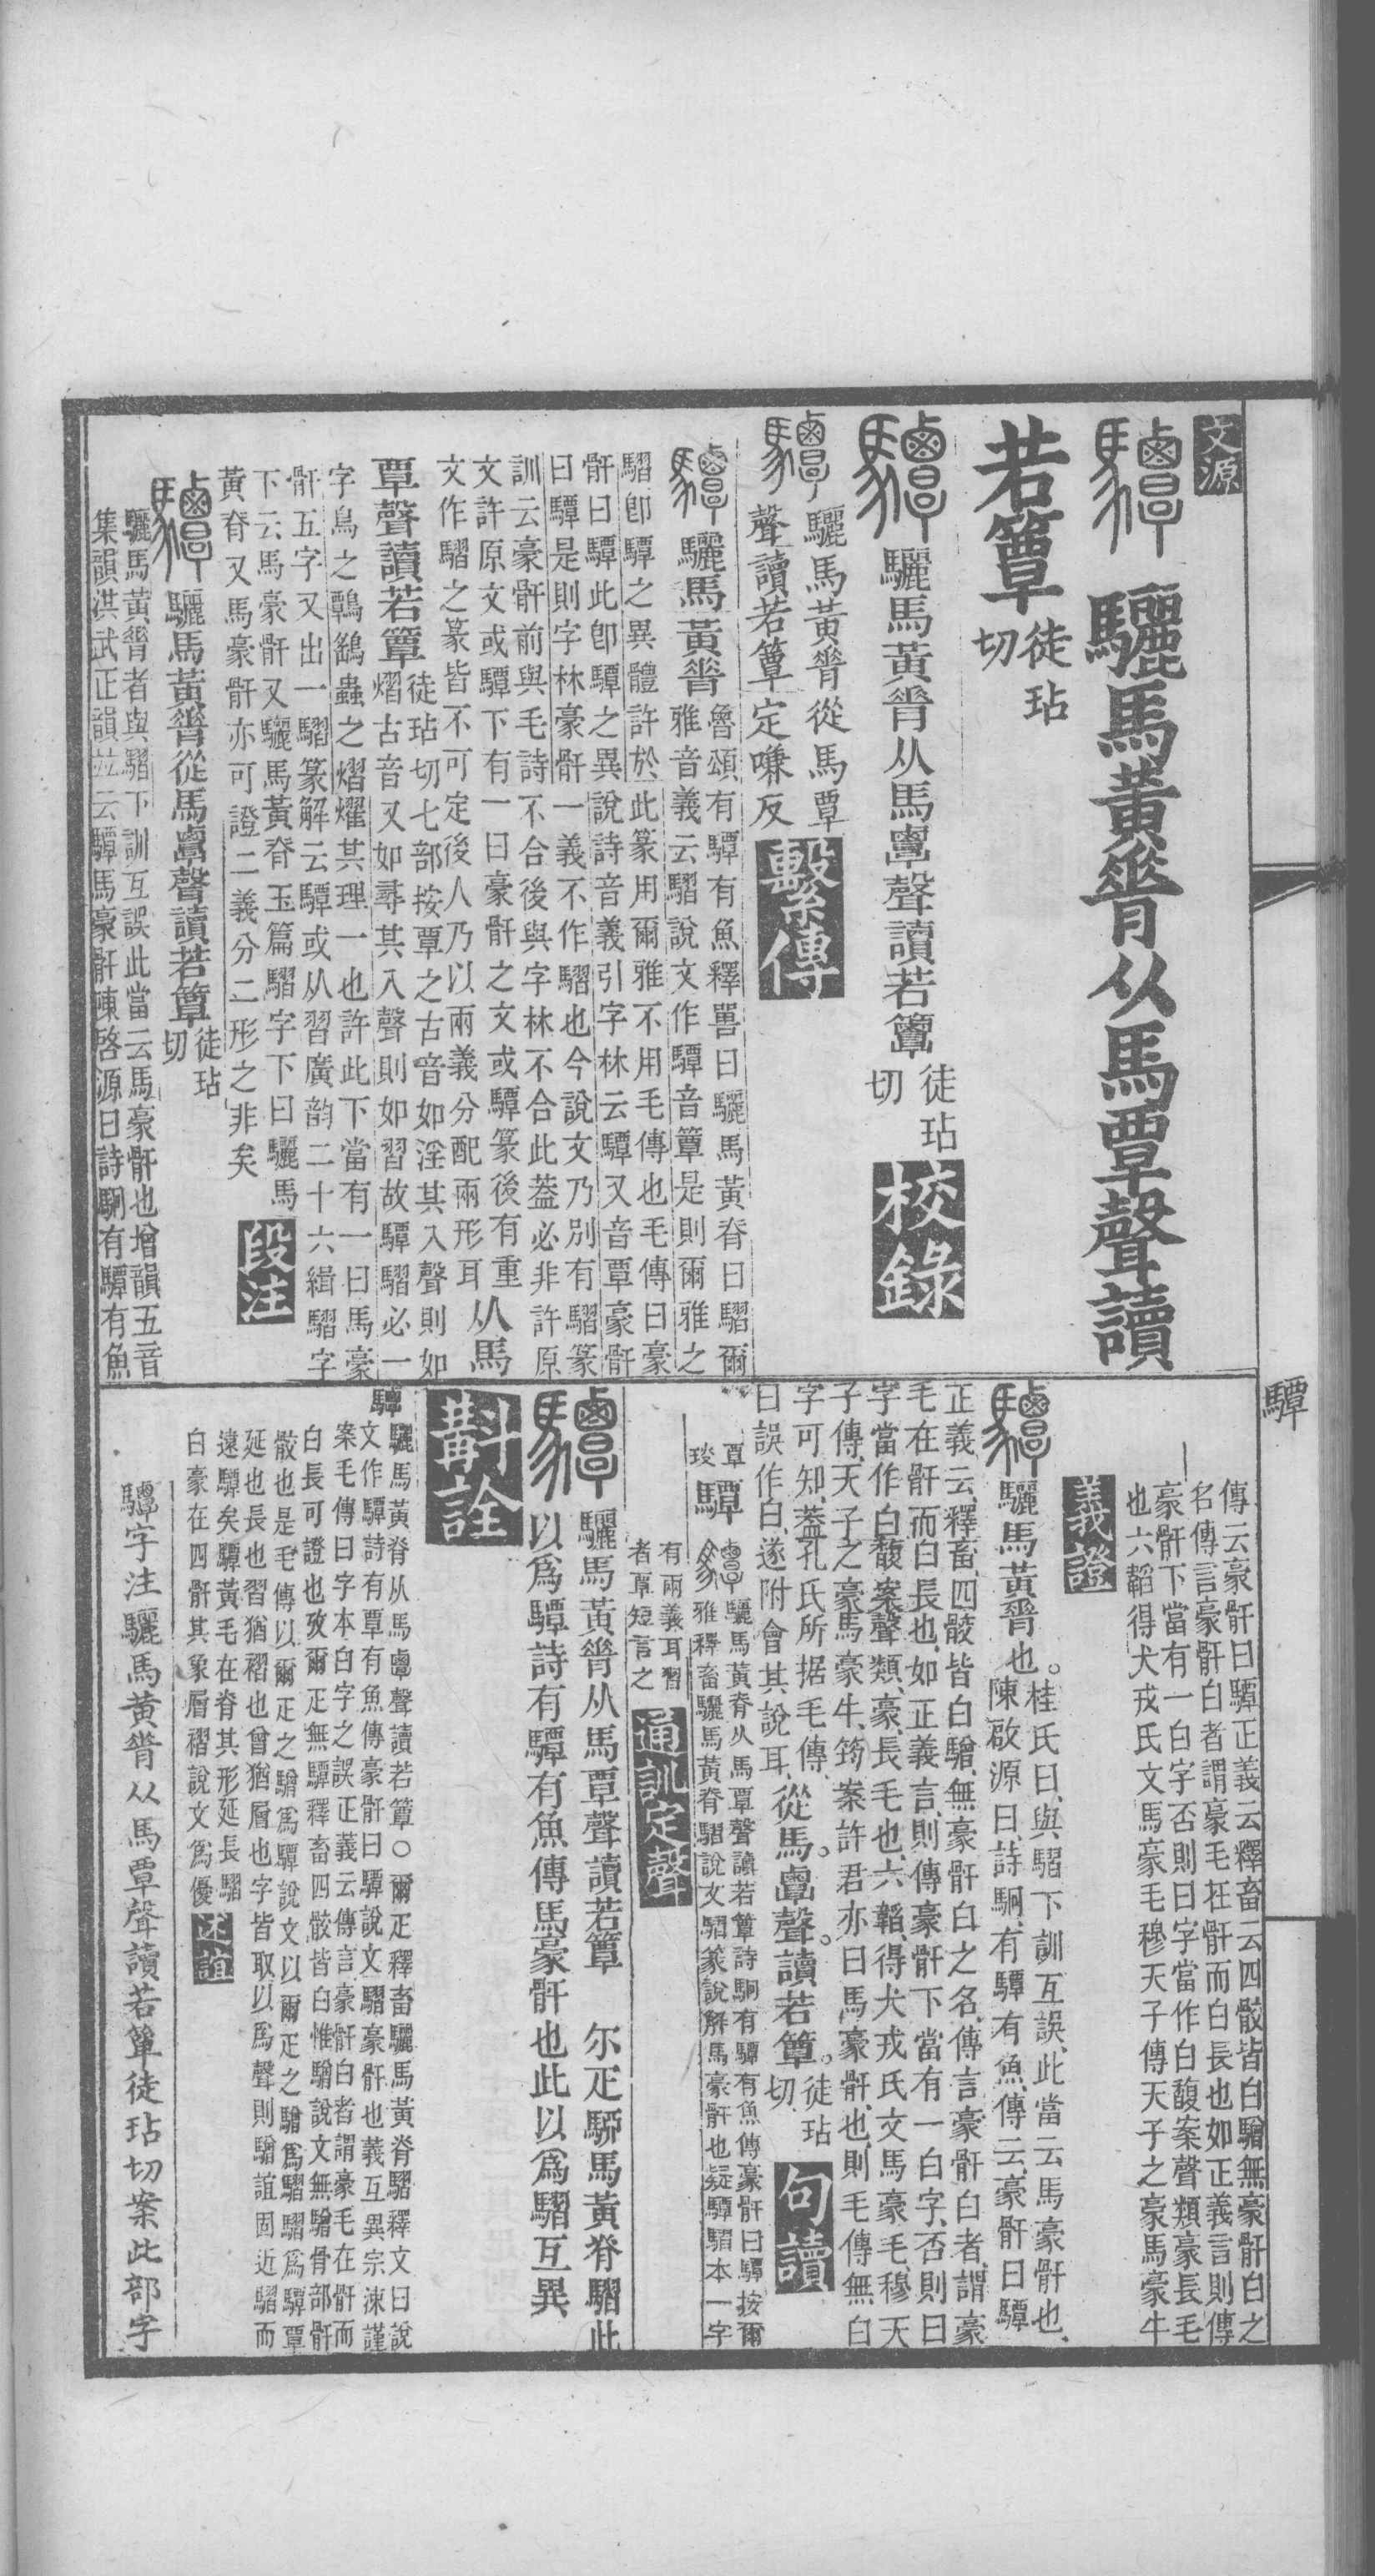 文源
驔 驪馬黃脊从馬覃聲讀
若簟 徒玷
切
驔 驪馬黃脊从馬𪉷聲讀若簟 徒玷
切
校錄
驔 驪馬黃脊從馬覃
聲讀若簟定嗛反
繫傳
驔 驪馬黃脊 魯頌有驔有魚釋嘼曰驪馬黃脊曰騽爾
雅音義云騽說文作驔音簟是則爾雅之
騽卽驔之異體許於此篆用爾雅不用毛傳也毛傳曰豪
骭曰驔此卽驔之異說詩音義引字林云驔又音覃豪骭
曰驔是則字林豪骭一義不作騽也今說文乃別有騽篆
訓云豪骭前與毛詩不合後與字林不合此葢必非許原
文許原文或驔下有一曰豪骭之文或驔篆後有重
文作騽之篆皆不可定後人乃以兩義分配兩形耳 从馬
覃聲讀若簟 徒玷切七部按覃之古音如淫其入聲則如
熠古音又如尋其入聲則如習故驔騽必一
字鳥之鷣鷂蟲之熠燿其理一也許此下當有一曰馬豪
骭五字又出一騽篆解云驔或从習廣韵二十六緝騽字
下云馬豪骭又驪馬黃脊玉篇騽字下曰驪馬
黃脊又馬豪骭亦可證二義分二形之非矣
段注
驔 驪馬黃脊從馬𪉷聲讀若簟 徒玷
切
驪馬黃脊者與騽下訓互誤此當云馬豪骭也增韻五音
集韻洪武正韻並云驔馬豪骭陳啓源曰詩駉有驔有魚
驔
傳云豪骭曰驔正義云釋畜云四骹皆白驓無豪骭白之
名傳言豪骭白者謂豪毛在骭而白長也如正義言則傳
豪骭下當有一白字否則曰字當作白馥案聲類豪長毛
也六韜得犬戎氏文馬豪毛穆天子傳天子之豪馬豪牛
義證
驔 驪馬黃脊也。桂氏曰、與騽下訓互誤、此當云馬豪骭也、
陳啟源曰、詩駉、有驔有魚、傳云、豪骭曰驔
正義云、釋畜、四骹皆白驓、無豪骭白之名、傳言豪骭白者、謂豪
毛在骭而白長也、如正義言、則傳豪骭下當有一白字、否則曰
字當作白、馥案聲類、豪、長毛也、六韜、得犬戎氏文馬豪毛、穆天
子傳、天子之豪馬豪牛、筠案許君亦曰馬豪骭也、則毛傳無白
字可知、蓋孔氏所据毛傳、
曰誤作白、遂附會其說耳、 從馬。𪉷聲。讀若簟。徒玷
切
句讀
覃
琰 驔 驪馬黃脊从馬覃聲讀若簟詩駉有驔有魚傳豪骭曰驔按爾
雅釋畜驪馬黃脊騽說文騽篆說解馬豪骭也疑驔騽本一字
有兩義耳習
者覃短言之
通訓定聲
驔 驪馬黃脊从馬覃聲讀若簟 尒疋驈馬黃脊騽此
以爲驔詩有驔有魚傳馬豪骭也此以爲騽互異
斠詮
驔 驪馬黃脊从馬𪉷聲讀若簟○爾疋釋畜驪馬黃脊騽釋文曰說
文作驔詩有覃有魚傳豪骭曰驔說文騽豪骭也義互異宗涑謹
案毛傳曰字本白字之誤正義云傳言豪骭白者謂豪毛在骭而
白長可證也攷爾疋無驔釋畜四骹皆白惟驓說文無驓骨部骭
骹也是毛傳以爾疋之驓爲驔說文以爾疋之驓爲騽騽爲驔覃
延也長也習猶褶也曾猶層也字皆取以爲聲則驓誼固近騽而
遠驔矣驔黃毛在脊其形延長騽
白豪在四骭其象層褶說文爲優
述誼
驔字注驪馬黃脊从馬覃聲讀若簟徒玷切案此部字